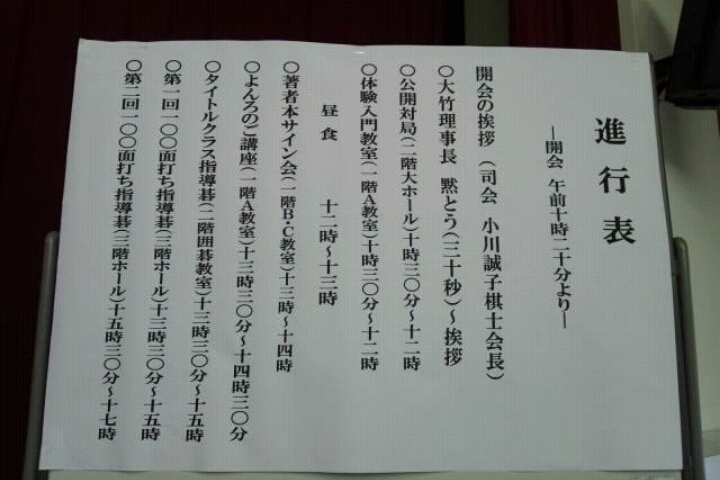 進行表
―開会 午前十時二十分より―
開会の挨拶 (司会 小川誠子棋士会長)
○大竹理事長 黙とう(三十秒)~挨拶
○公開対局(二階大ホール)十時三〇分~十二時
○体験入門教室(一階A教室)十時三〇分~十二時
昼食 十二時~十三時
○著者本サイン会(一階B・C教室)十三時~十四時
○よんろのご講座(一階A教室)十三時三〇分~十四時三〇分
○タイトルクラス指導碁(二階囲碁教室)十三時三〇分~十五時
○第一回一〇〇面打ち指導碁(三階ホール)十三時三〇分~十五時
○第二回一〇〇面打ち指導碁(三階ホール)十五時三〇分~十七時